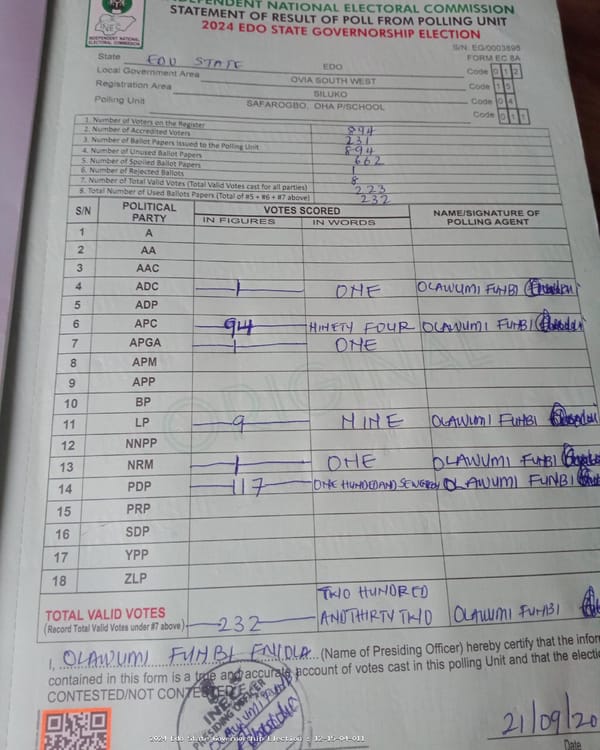 INDEPENDENT NATIONAL ELECTORAL COMMISSION
STATEMENT OF RESULT OF POLL FROM POLLING UNIT
2024 EDO STATE GOVERNORSHIP ELECTION
INEC
INDEPENDENT NATIONAL
ELECTORAL COMMISSION
S/N. EG/0003898
FORM EC 8A
State EDO STATE EDO Code 0 1 2
Local Government Area OVIA SOUTH WEST Code 1 5
Registration Area SILUKO Code 0 4
Polling Unit SAFAROGBO, OHA P/SCHOOL Code 0 1 1
1. Number of Voters on the Register 894
2. Number of Accredited Voters 231
3. Number of Ballot Papers Issued to the Polling Unit 894
4. Number of Unused Ballot Papers 662
5. Number of Spoiled Ballot Papers 1
6. Number of Rejected Ballots 8
7. Number of Total Valid Votes (Total Valid Votes cast for all parties) 223
8. Total Number of Used Ballots Papers (Total of #5 + #6 + #7 above) 232
S/N POLITICAL PARTY VOTES SCORED NAME/SIGNATURE OF POLLING AGENT
IN FIGURES IN WORDS
1 A
2 AA
3 AAC
4 ADC 1 ONE OLAWUMI FUNBI
5 ADP
6 APC 94 NINETY FOUR OLAWUMI FUNBI
7 APGA 1 ONE
8 APM
9 APP
10 BP
11 LP 9 NINE OLAWUMI FUNBI
12 NNPP
13 NRM 1 ONE OLAWUMI FUNBI
14 PDP 117 ONE HUNDED AND SEVENTEEN OLAWUMI FUNBI
15 PRP
16 SDP
17 YPP
18 ZLP
TOTAL VALID VOTES 232 TWO HUNDRED AND THIRTY TWO OLAWUMI FUNBI
(Record Total Valid Votes under #7 above)
I, OLAWUMI FUNBI ENIOLA (Name of Presiding Officer) hereby certify that the infor
contained in this form is a true and accurate account of votes cast in this polling Unit and that the electio
CONTESTED/NOT CONTESTED
INEC
PRESIDING OFFICER
21/09/20
Date
ORIGINAL
2024 Edo State Governorship Election : 12-15-04-011